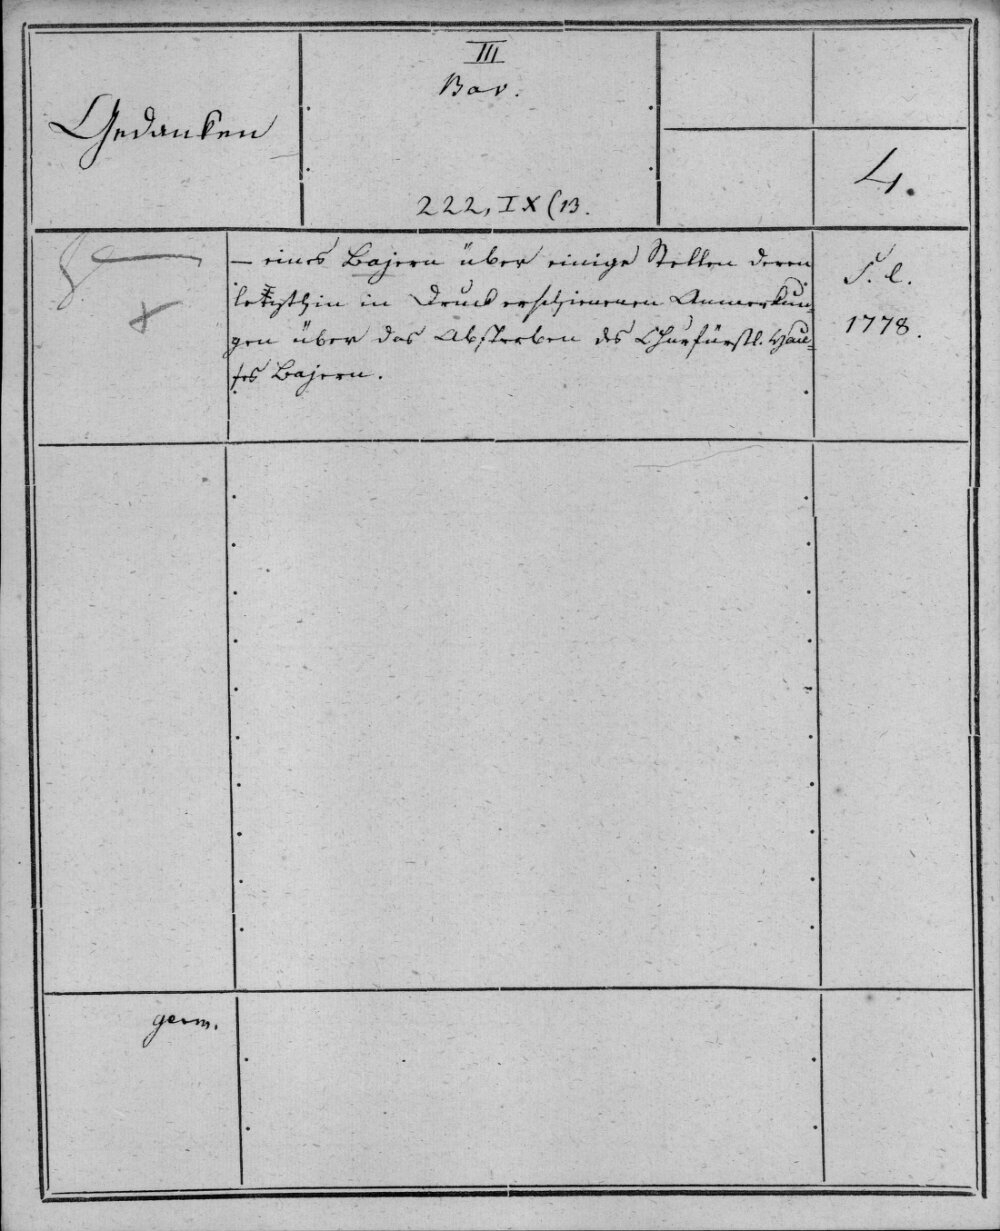 Gedanken
III
Bav.
222, IX (13.
4.
— eines Bajern über einige Stellen deren
letzthin in Druck erschienenen Anmerkun=
gen über das Absterben des Churfürstl. Hau=
ses Bajern.
S. l.
1778.
germ.